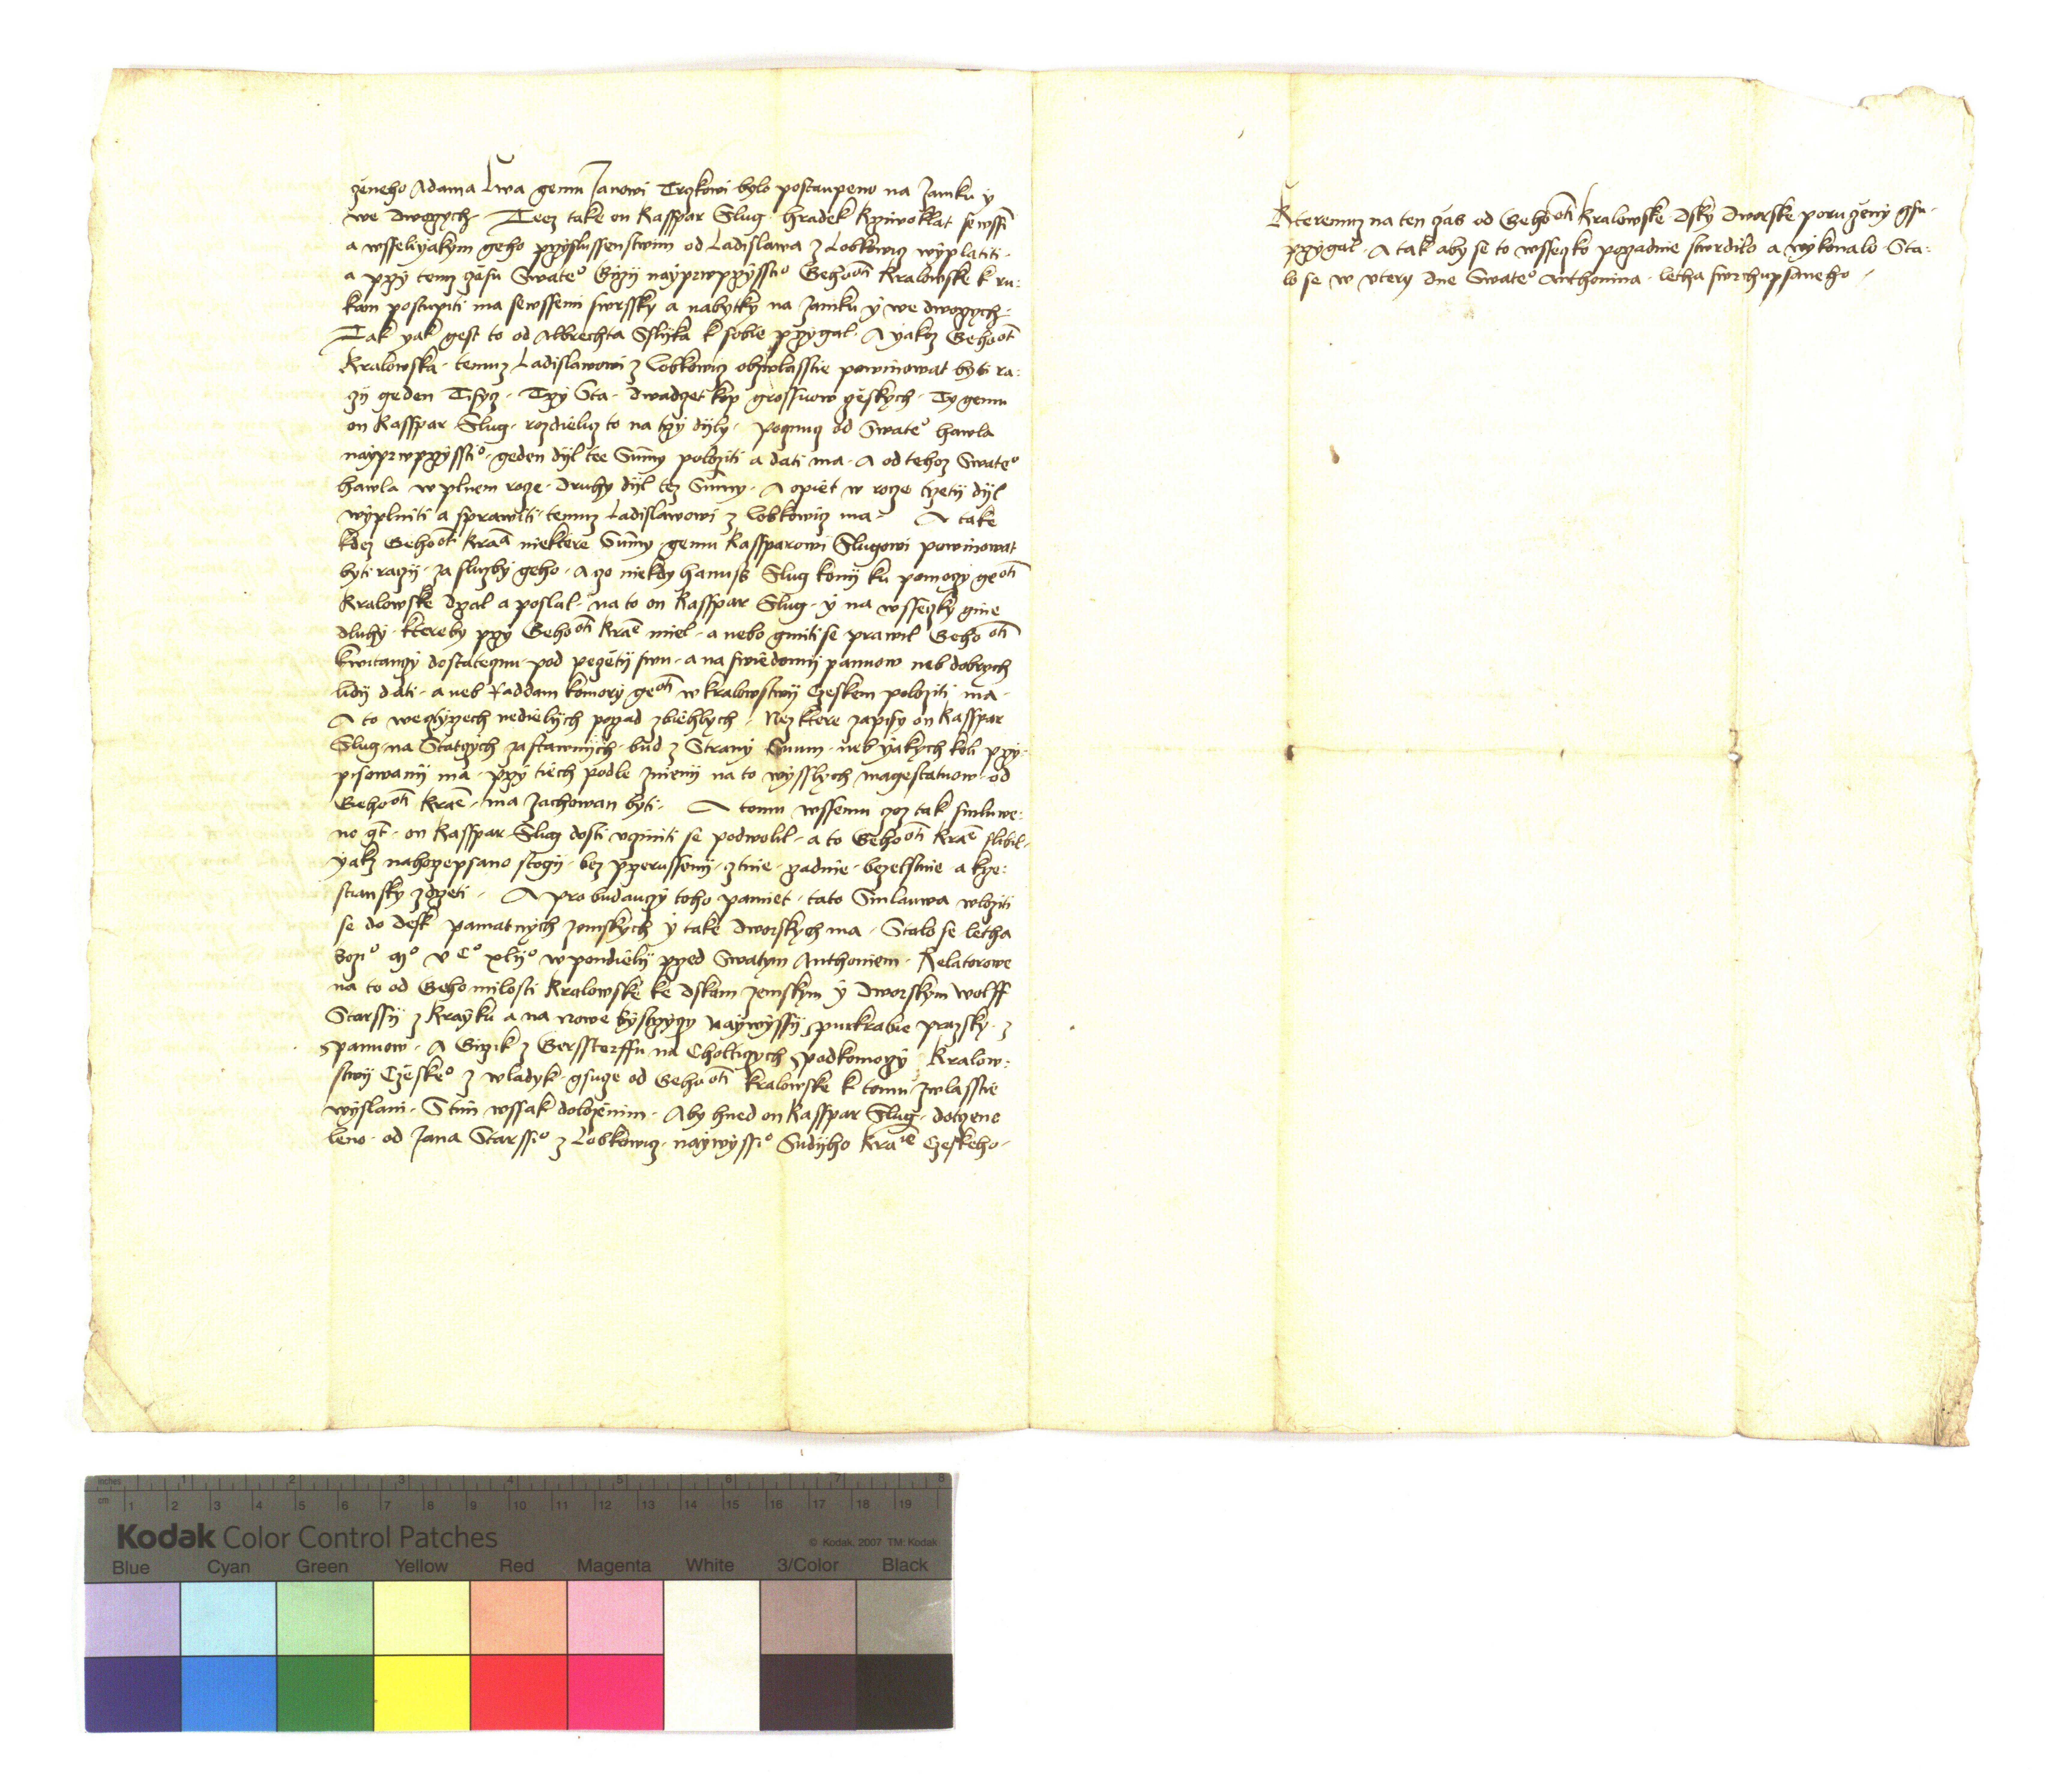 zeneho Adama Lwa gemu Janowi Trzkowi bylo postaupeno na Zamku y
we dworzych. Teez take on Kasspar Slug. hradek Krziwoklat sewssi
a wsselikyakym geho przyslussenstwim od Ladislawa z Lobkowicz wyplatiti.
a przy temz czasu Swateho Girzij nayprwprzysstiho Gehooti Kralowske k ru:
kam postupiti ma sewssemi swrssky a nabytky na Zamku y we dworzych:
Tak yak gest to od Albrechta Sslika k sobie przygal. A yakoz Gehoot
Kralowska. temuz Ladislawowi z Lobkowicz obzwlasstie powinowat byti ra:
czy geden Tisycz. Trzy Sta. dwadczet kop grossuow czeskych. Ty gemu
on Kasspar Slug. rozdieliecz to na trzy dyly. pocznucz od Swateho hawla
nayprwprzysstiho. geden dyl tee Summy poloziti a dati ma. A od tehoz Swateho
hawla w plnem rocze. druhy dyl tez Summy. A opiet w rocze trzetij dyl
wyplniti a sprawiti. temuz Ladislawowi z Lobkowicz ma. A take
kdez Gehoot Kraa niektere Summy. gemu Kassparowi Slugowi powinowat
byti raczij. za sluzby geho. A czo niekdy hanuss Slug konij ku pomoczy geoti
Kralowske drzal a poslal. na to on Kasspar Slug. y na wsseczky gine
dluhy. ktereby przy Gehooti Krae miel. a nebo gmiti se prawil Gehooti
kwitanczy dostatecznu. pod peczetij swu. a na swiedomij panuow neb dobrych
lidij dati. a neb Raddam komory geoti w kralowstwij Czeskem poloziti ma.
A to we cztyrzech nedielych porzad zbiehlych. Nez ktere zapisy on Kasspar
Slug na Statczych zastawnych. bud z Strany Summ. neb yakych koli przy:
pisowanij ma. przy tiech podle znienij na to wysslych magestatuow. od
Gehooti Krae. ma zachowan byti. A tomu wssemu czoz tak smluwe:
no gt. on Kasspar Slug dosti vcziniti se podwolil. a to Gehooti Krae slibil.
yakz nahorzepsano stogij. bez przerussenij. cztnie. rzadnie. bezelstnie a krze:
stiansky zdrzeti. A pro buduczy toho pamiet. tato Smlauwa wloziti
se do desk pamatnych zemskych y take dworskych ma. Stalo se letha
Bozio Mo vCo xlijo w pondielij przed Swatym Anthoniem. Relatorowe
na to od Geho milosti Kralowske ke dskam zemskym y dworskym wolff
Starssij z Kraÿku a na Nowe Bystrzyczy Naywyssij purkrabie prazsky. z
panuow. A Girzik z Gerssdorffu na Cholticzych podkomorzy Kralow:
stwij Czeskeho z wladyk. gsucze od Gehooti kralowske k tomu zwlasstie
wyslani. Stim wssak dolozenim. Aby hned on Kasspar Slug. dotczene
leno. od Jana Starssiho z Lobkowicz. naywyssiho Sudijho Kraie Czeskeho.
Kteremuz na ten czas od Gehooti Kralowske. dsky dworske poruczeny gsu.
przygal. A tak aby se to wsseczko porzadnie stwrdilo a wykonalo. Sta:
lo se w vtery dne Swateho Anthonina. letha swrchupsaneho.